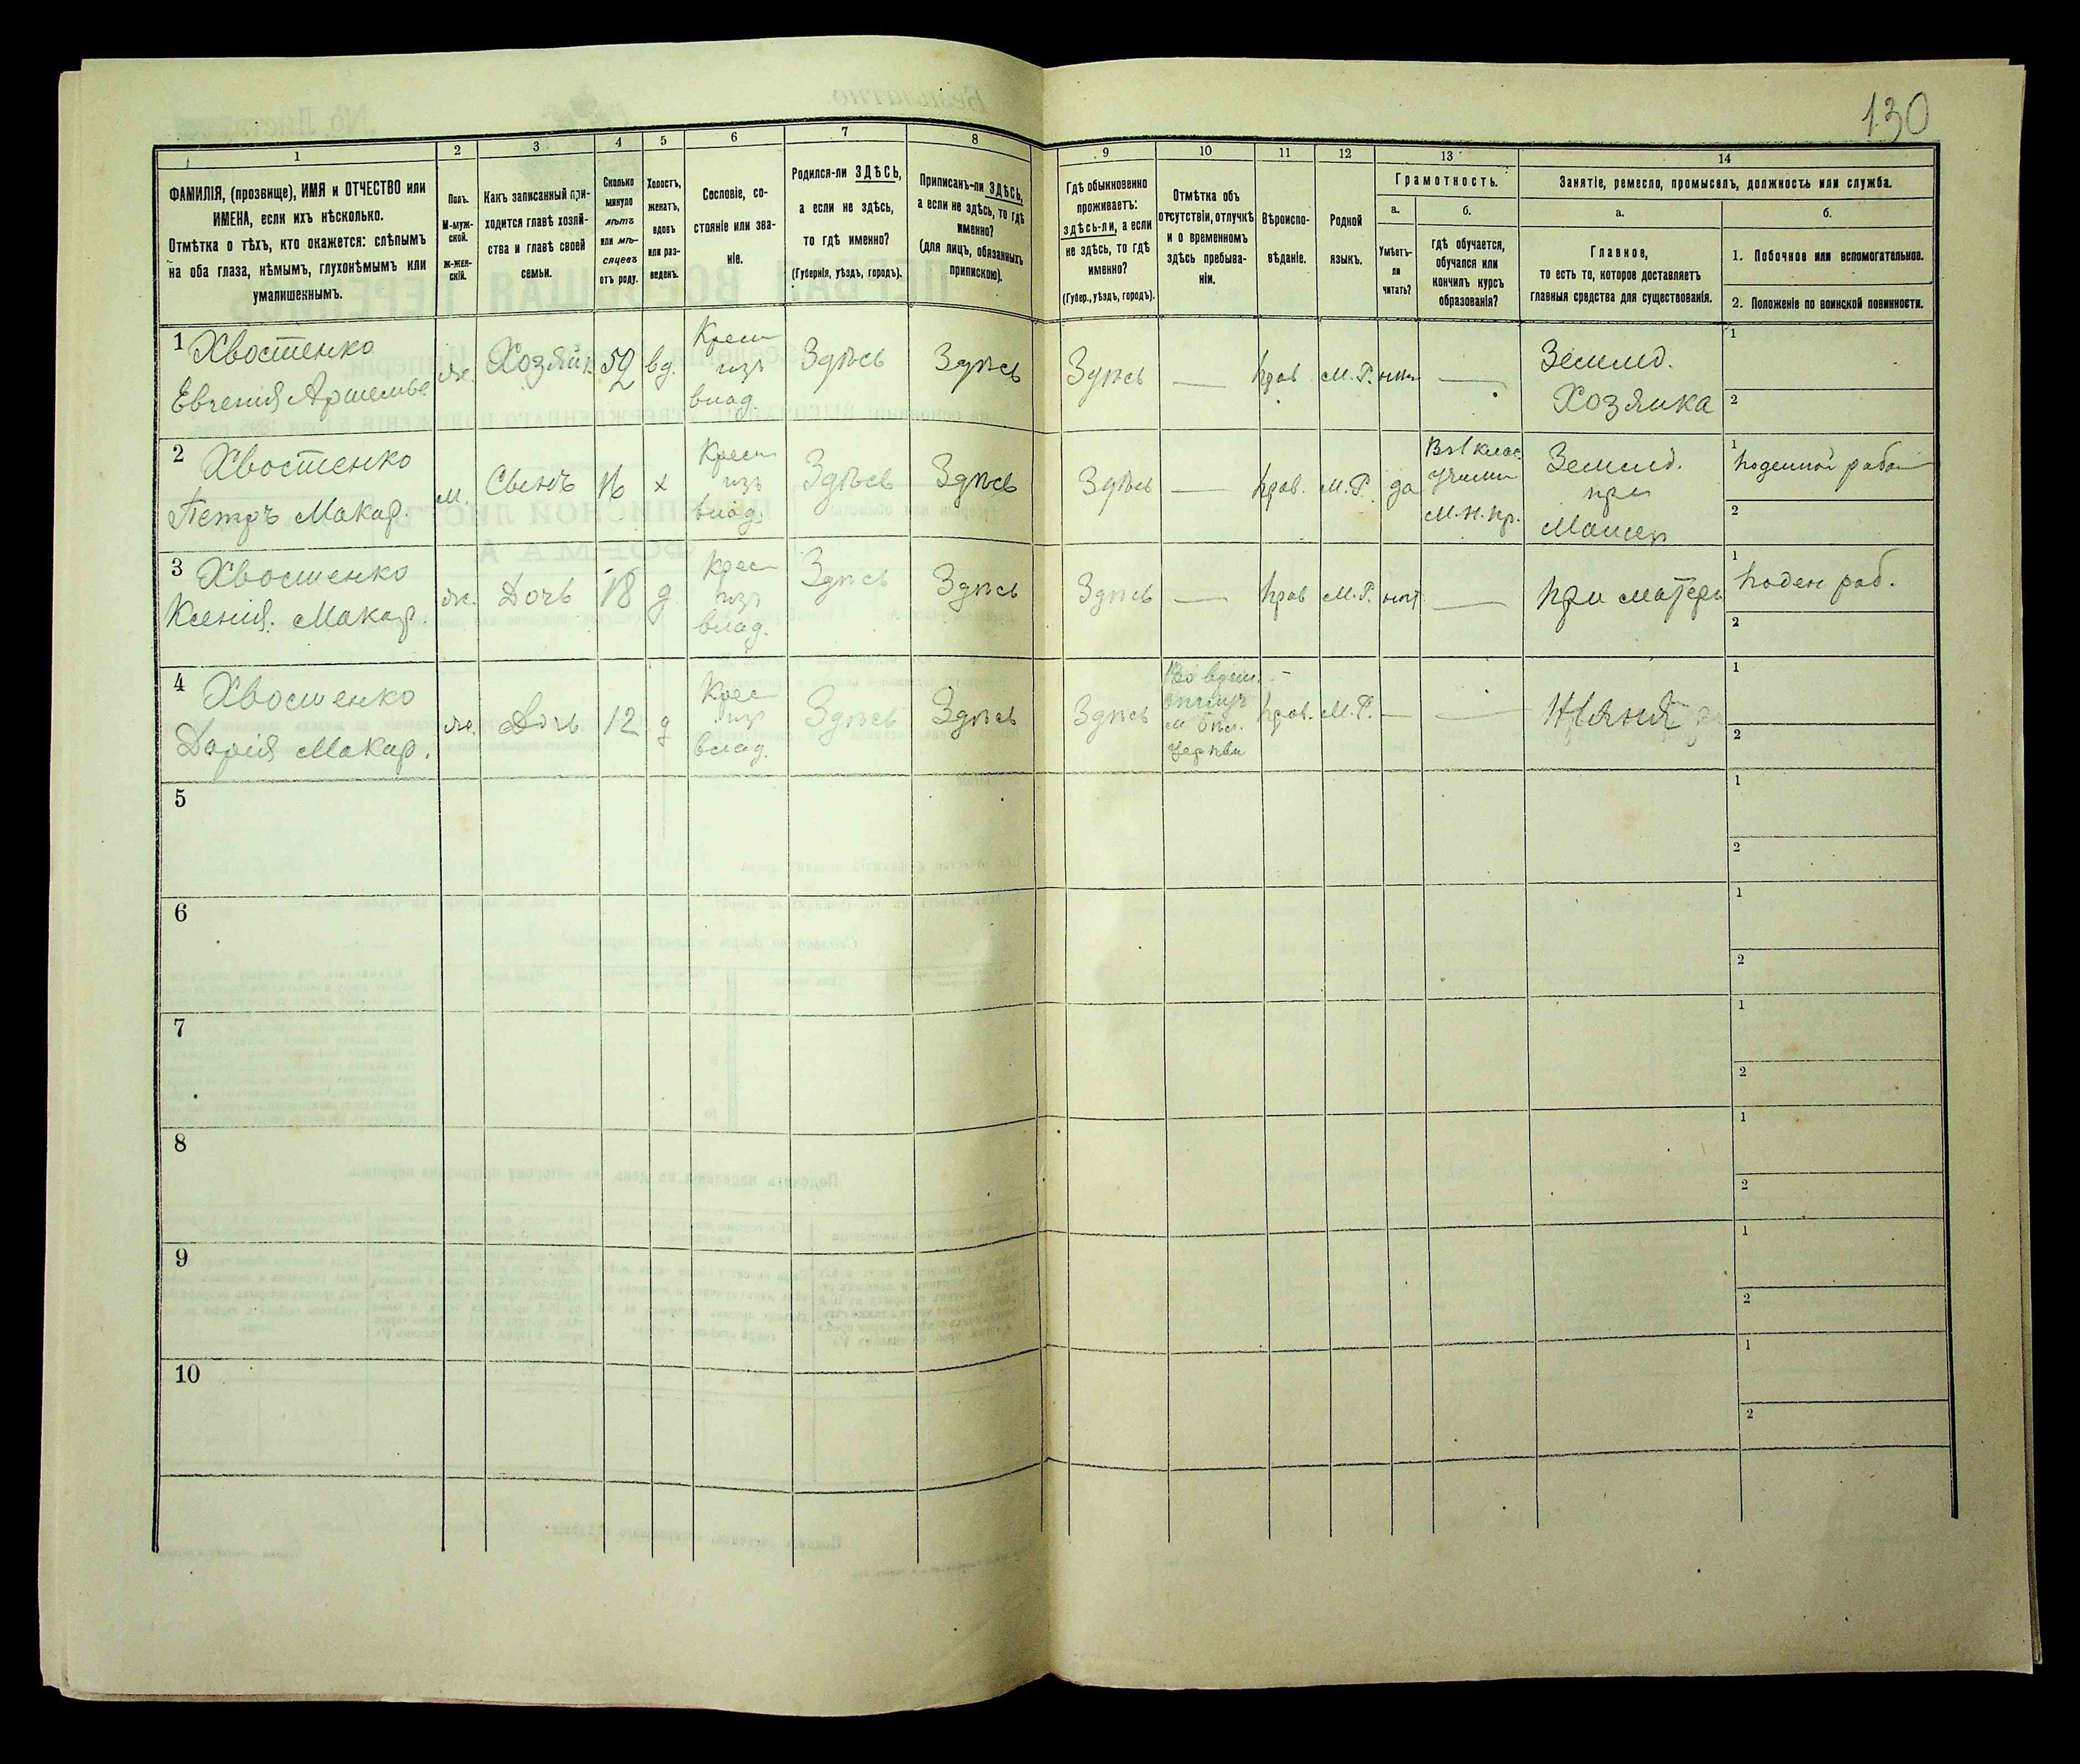 130
1
2
3
4
5
6
7
8
9
10
11
12
13
14
ФАМИЛІЯ, (прозвище), ИМЯ и ОТЧЕСТВО или
ИМЕНА, если ихъ нѣсколько.
Отмѣтка о тѣхъ, кто окажется: слѣпымъ
на оба глаза, нѣмымъ, глухонѣмымъ или
умалишеннымъ.
Полъ.
М-муж-
ской.
Ж-жен-
скій.
Какъ записанный при-
ходится главѣ хозяй-
ства и главѣ своей
семьи.
Сколько
минуло
лѣтъ
или мѣ-
сяцевъ
отъ роду.
Холостъ,
женатъ,
вдовъ
или раз-
веденъ.
Сословіе, со-
стояніе или зва-
ніе.
Родился-ли ЗДѢСЬ,
а если не здѣсь,
то гдѣ именно?
(Губернія, уѣздъ, городъ).
Приписанъ-ли ЗДѢСЬ,
а если не здѣсь, то гдѣ
именно?
(для лицъ, обязанныхъ
припискою).
Гдѣ обыкновенно
проживаетъ:
здѣсь-ли, а если
не здѣсь, то гдѣ
именно?
(Губер., уѣздъ, городъ).
Отмѣтка объ
отсутствіи, отлучкѣ
и о временномъ
здѣсь пребыва-
ніи.
Вѣроиспо-
вѣданіе.
Родной
языкъ.
Грамотность.
а.
Умѣетъ-
ли
читать?
б.
гдѣ обучается,
обучался или
кончилъ курсъ
образованія?
Занятіе, ремесло, промыселъ, должность или служба.
а.
Главное,
то есть то, которое доставляетъ
главныя средства для существованія.
б.
1. Побочное или вспомогательное.
2. Положеніе по воинской повинности.
1 Хвостенко
Евгенія Артемьев
ж.
Хозяйк
52
вд.
Крест
изъ
влад.
Здѣсь
Здѣсь
Здѣсь
—
прав
М.Р.
нѣт
—
Землед.
Хозяйка
1
2
2 Хвостенко
Петръ Макар.
м.
Сынъ
16
х
Крест
изъ
влад.
Здѣсь
Здѣсь
Здѣсь
—
прав.
М.Р.
да
Въ 1 клас.
Учили
М.Н.Пр.
Землед.
при
Матер
1 Поденной работ
2
3 Хвостенко
Ксенія. Макар.
ж.
Дочь
18
д
Крес
изъ
влад.
Здѣсь
Здѣсь
Здѣсь
—
прав
М.Р.
нѣт
—
при матери
1 Поден раб.
2
4 Хвостенко
Дарія Макар.
ж.
Дочь
12
д
Крес
изъ
влад.
Здѣсь
Здѣсь
Здѣсь
Во врем.
м. Бѣл.
Церкви
прав.
М.Р.
—
—
Няня
1
2
5
1
2
6
1
2
7
1
2
8
1
2
9
1
2
10
1
2